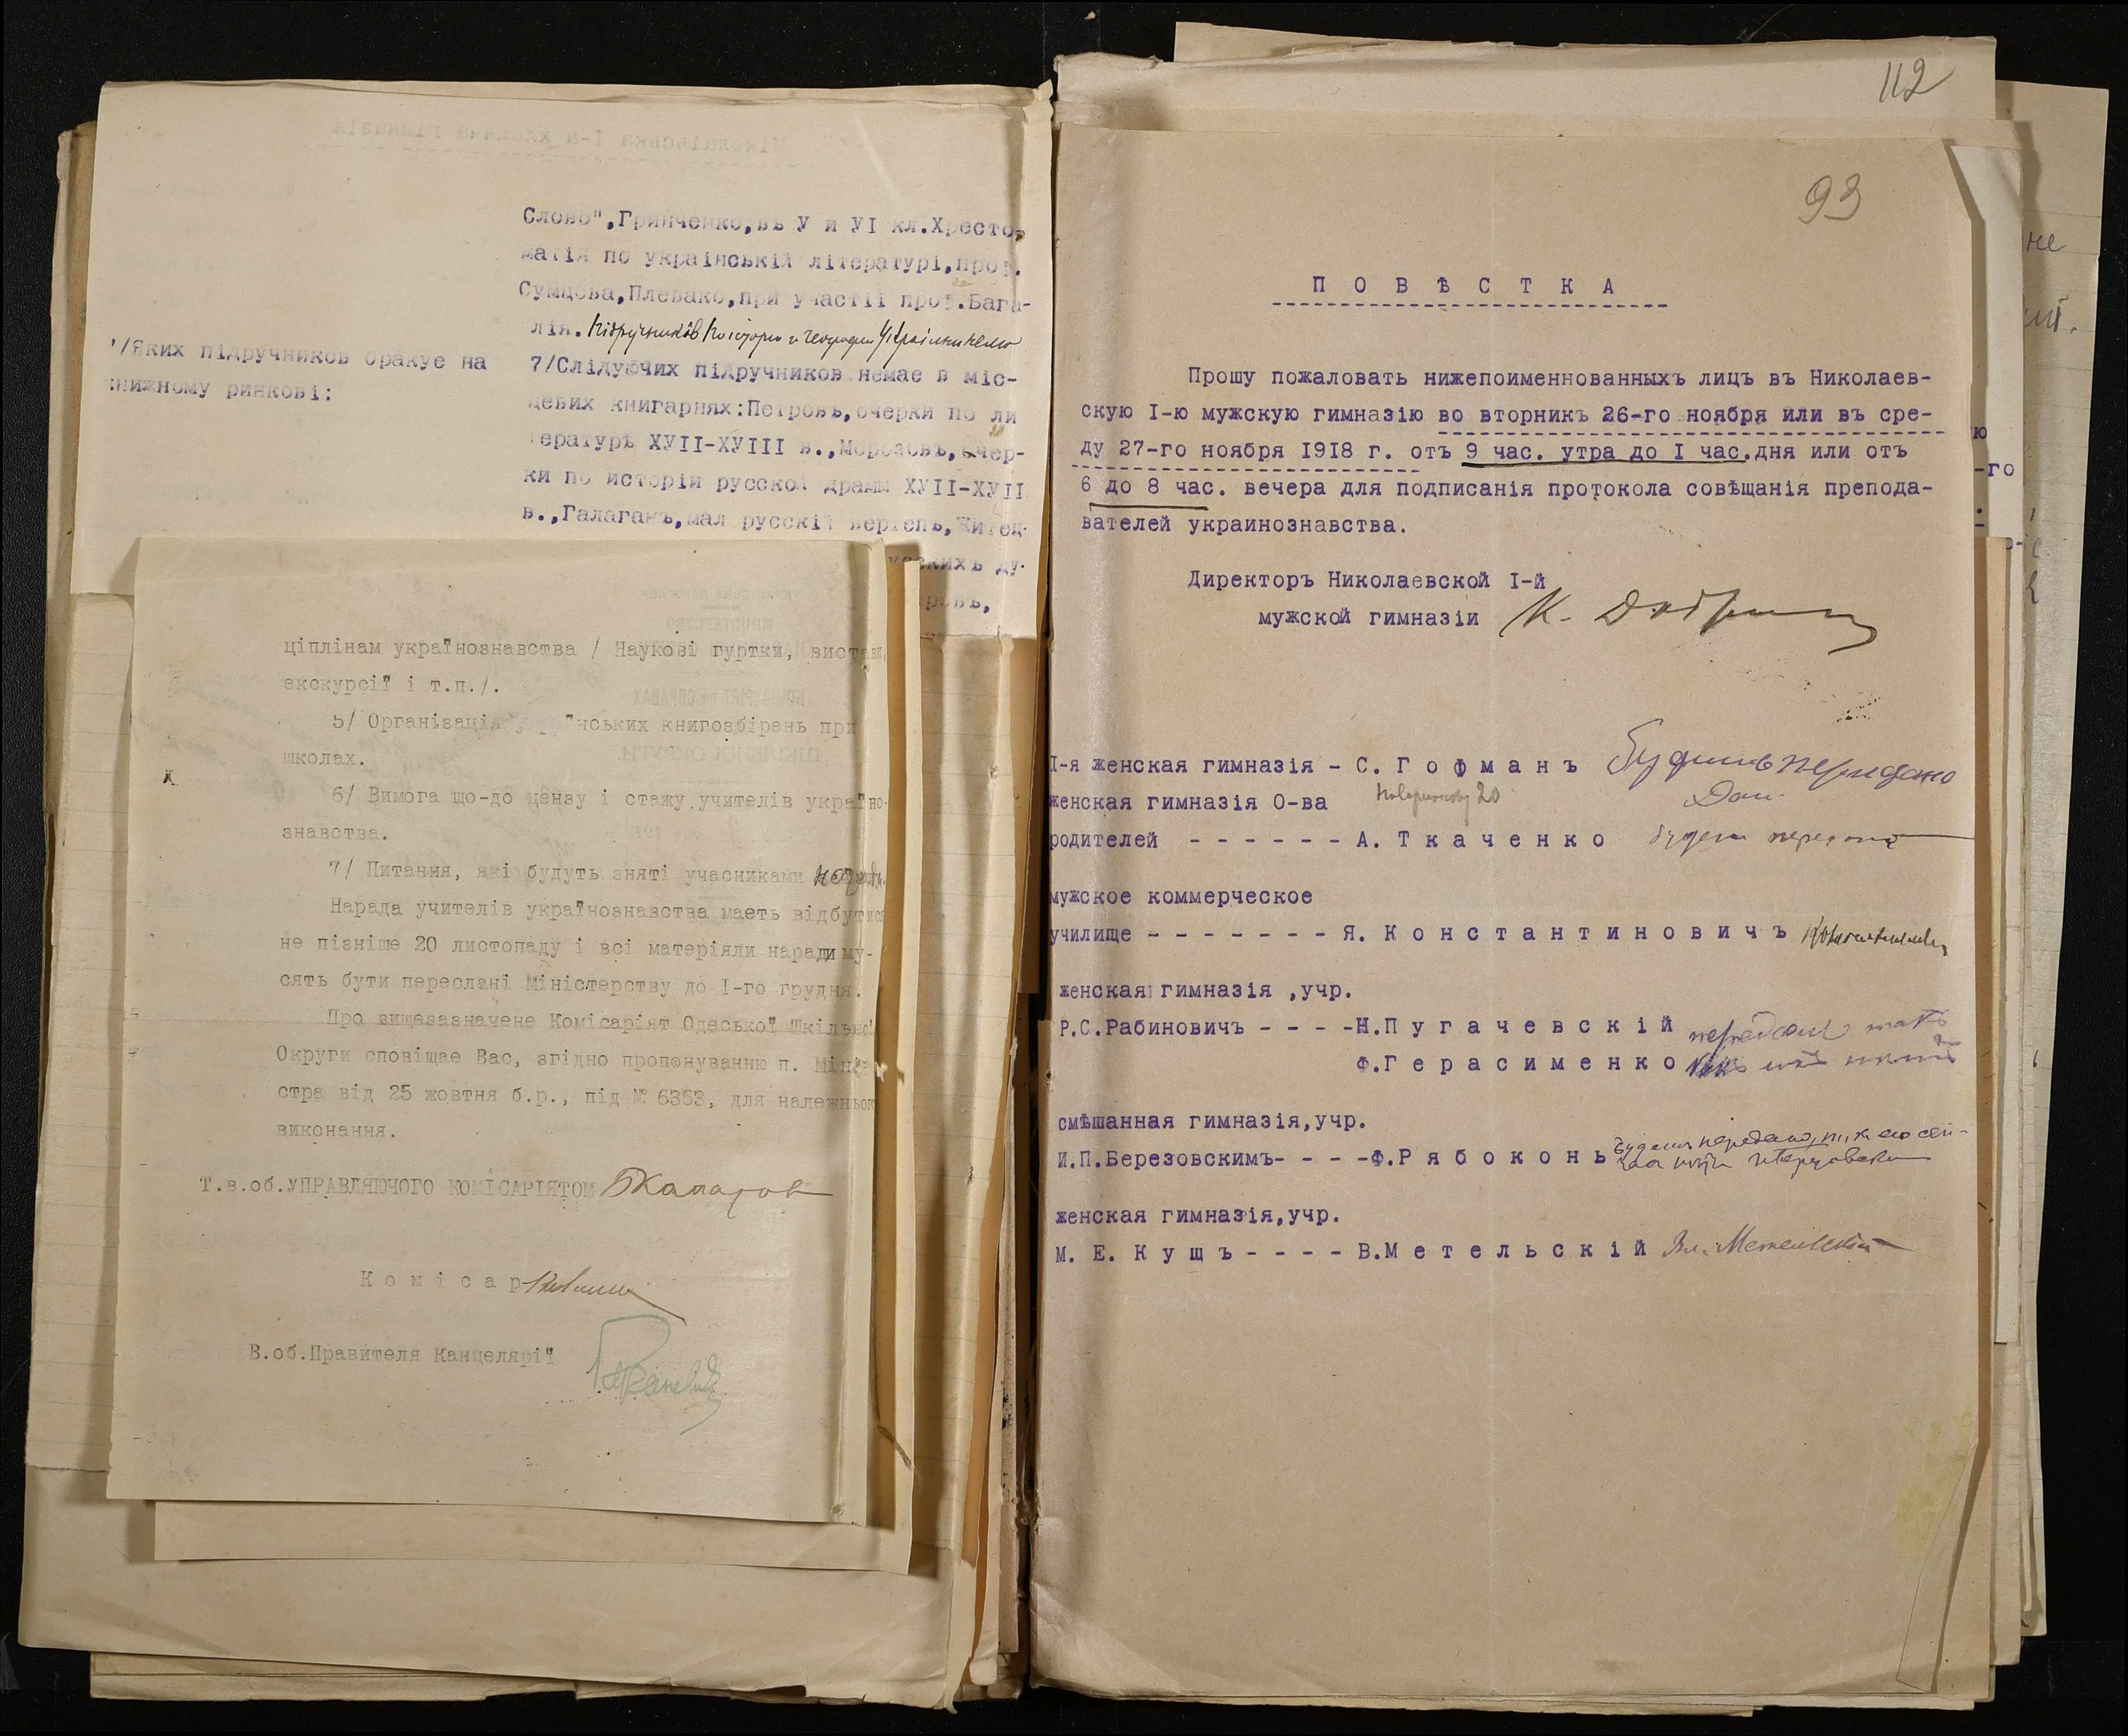 Слово",Гринченко,въ У и УІ кл.Хресто-
матія по украінській літературі,проф.
Сумцова,Плевако,при участіі проф.Бага-
лія. Підручників по історіи и географіи України немає
7/Яких підручников бракує на
книжному ринкові:
7/Слідуючих підручников немае в міс-
цевих книгарнях:Петровъ,очерки по ли
тературѣ ХУІІ-ХУІІІ в.,Морозовъ,очер-
ки по исторіи русской драмы ХУІІ-ХУІІ
в.,Галаганъ,мал русскій вертепъ,Житец-
усскихъ ду-
ровъ,
ціплінам украї̈нознавства / Наукові гуртки, вистави,
екскурсії і т.п./.
5/ Організація українських книгозбірень при
школах.
6/ Вимога що-до цензу і стажу учителів україно-
знавства.
7/ Питання, які будуть зняті учасниками
Нарада учителів українознавства маеть відбутися
не пізніше 20 листопаду і всі матеріяли наради му-
сять бути переслані Міністерству до І-го грудня.
Про вищезазначене Комісаріят Одеської Шкільної
Округи сповіщае Вас, згідно пропонуванню п. Міні-
стра від 25 жовтня б.р., під № 6363, для належнього
виконання.
Т.в.об.УПРАВЛЯЮЧОГО КОМІСАРІЯТОМ
Комісар
В.об.Правителя Канцелярії
112
93
ПОВѢСТКА
Прошу пожаловать нижепоименнованныхъ лицъ въ Николаев-
скую І-ю мужскую гимназію во вторникъ 26-го ноября или въ сре-
ду 27-го ноября 1918 г. отъ 9 час. утра до І час.дня или отъ
6 до 8 час. вечера для подписанія протокола совѣщанія препода-
вателей украинознавства.
Директоръ Николаевской І-й
мужской гимназіи
І-я женская гимназія - С. Гофманъ Будетъ передано
женская гимназія О-ва
родителей - - - - - - А. Ткаченко будетъ передано
мужское коммерческое
училище - - - - - - - Я. Константиновичъ
женская гимназія ,учр.
Р.С.Рабиновичъ - - - -Н.Пугачевскій
Ф.Герасименко
смѣшанная гимназія,учр.
И.П.Березовскимъ- - - -Ф.Рябоконь будетъ передано, т. к.
женская гимназія,учр.
М. Е. Кущъ - - - - В.Метельскій Вл. Метельскій
не
ю
-го